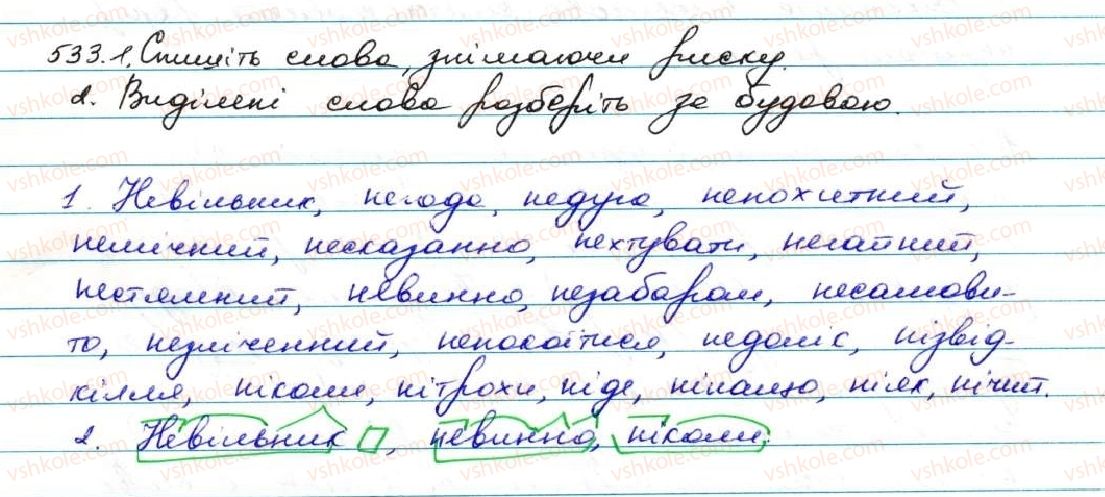 533.1. Спишіть слова, знімаючи риску.
2. Виділені слова розберіть за будовою.
1. Невільник, негода, недуга, непохитний,
немічний, несказанно, нехтувати, негайний,
нестямний, невинно, незабаром, несамови-
то, незліченний, непокоїтися, недоліс, нізвід-
кілля, ніколи, нітрохи, ніде, нінащо, ніяк, нічий.
2. Невільник, невинно, ніколи.